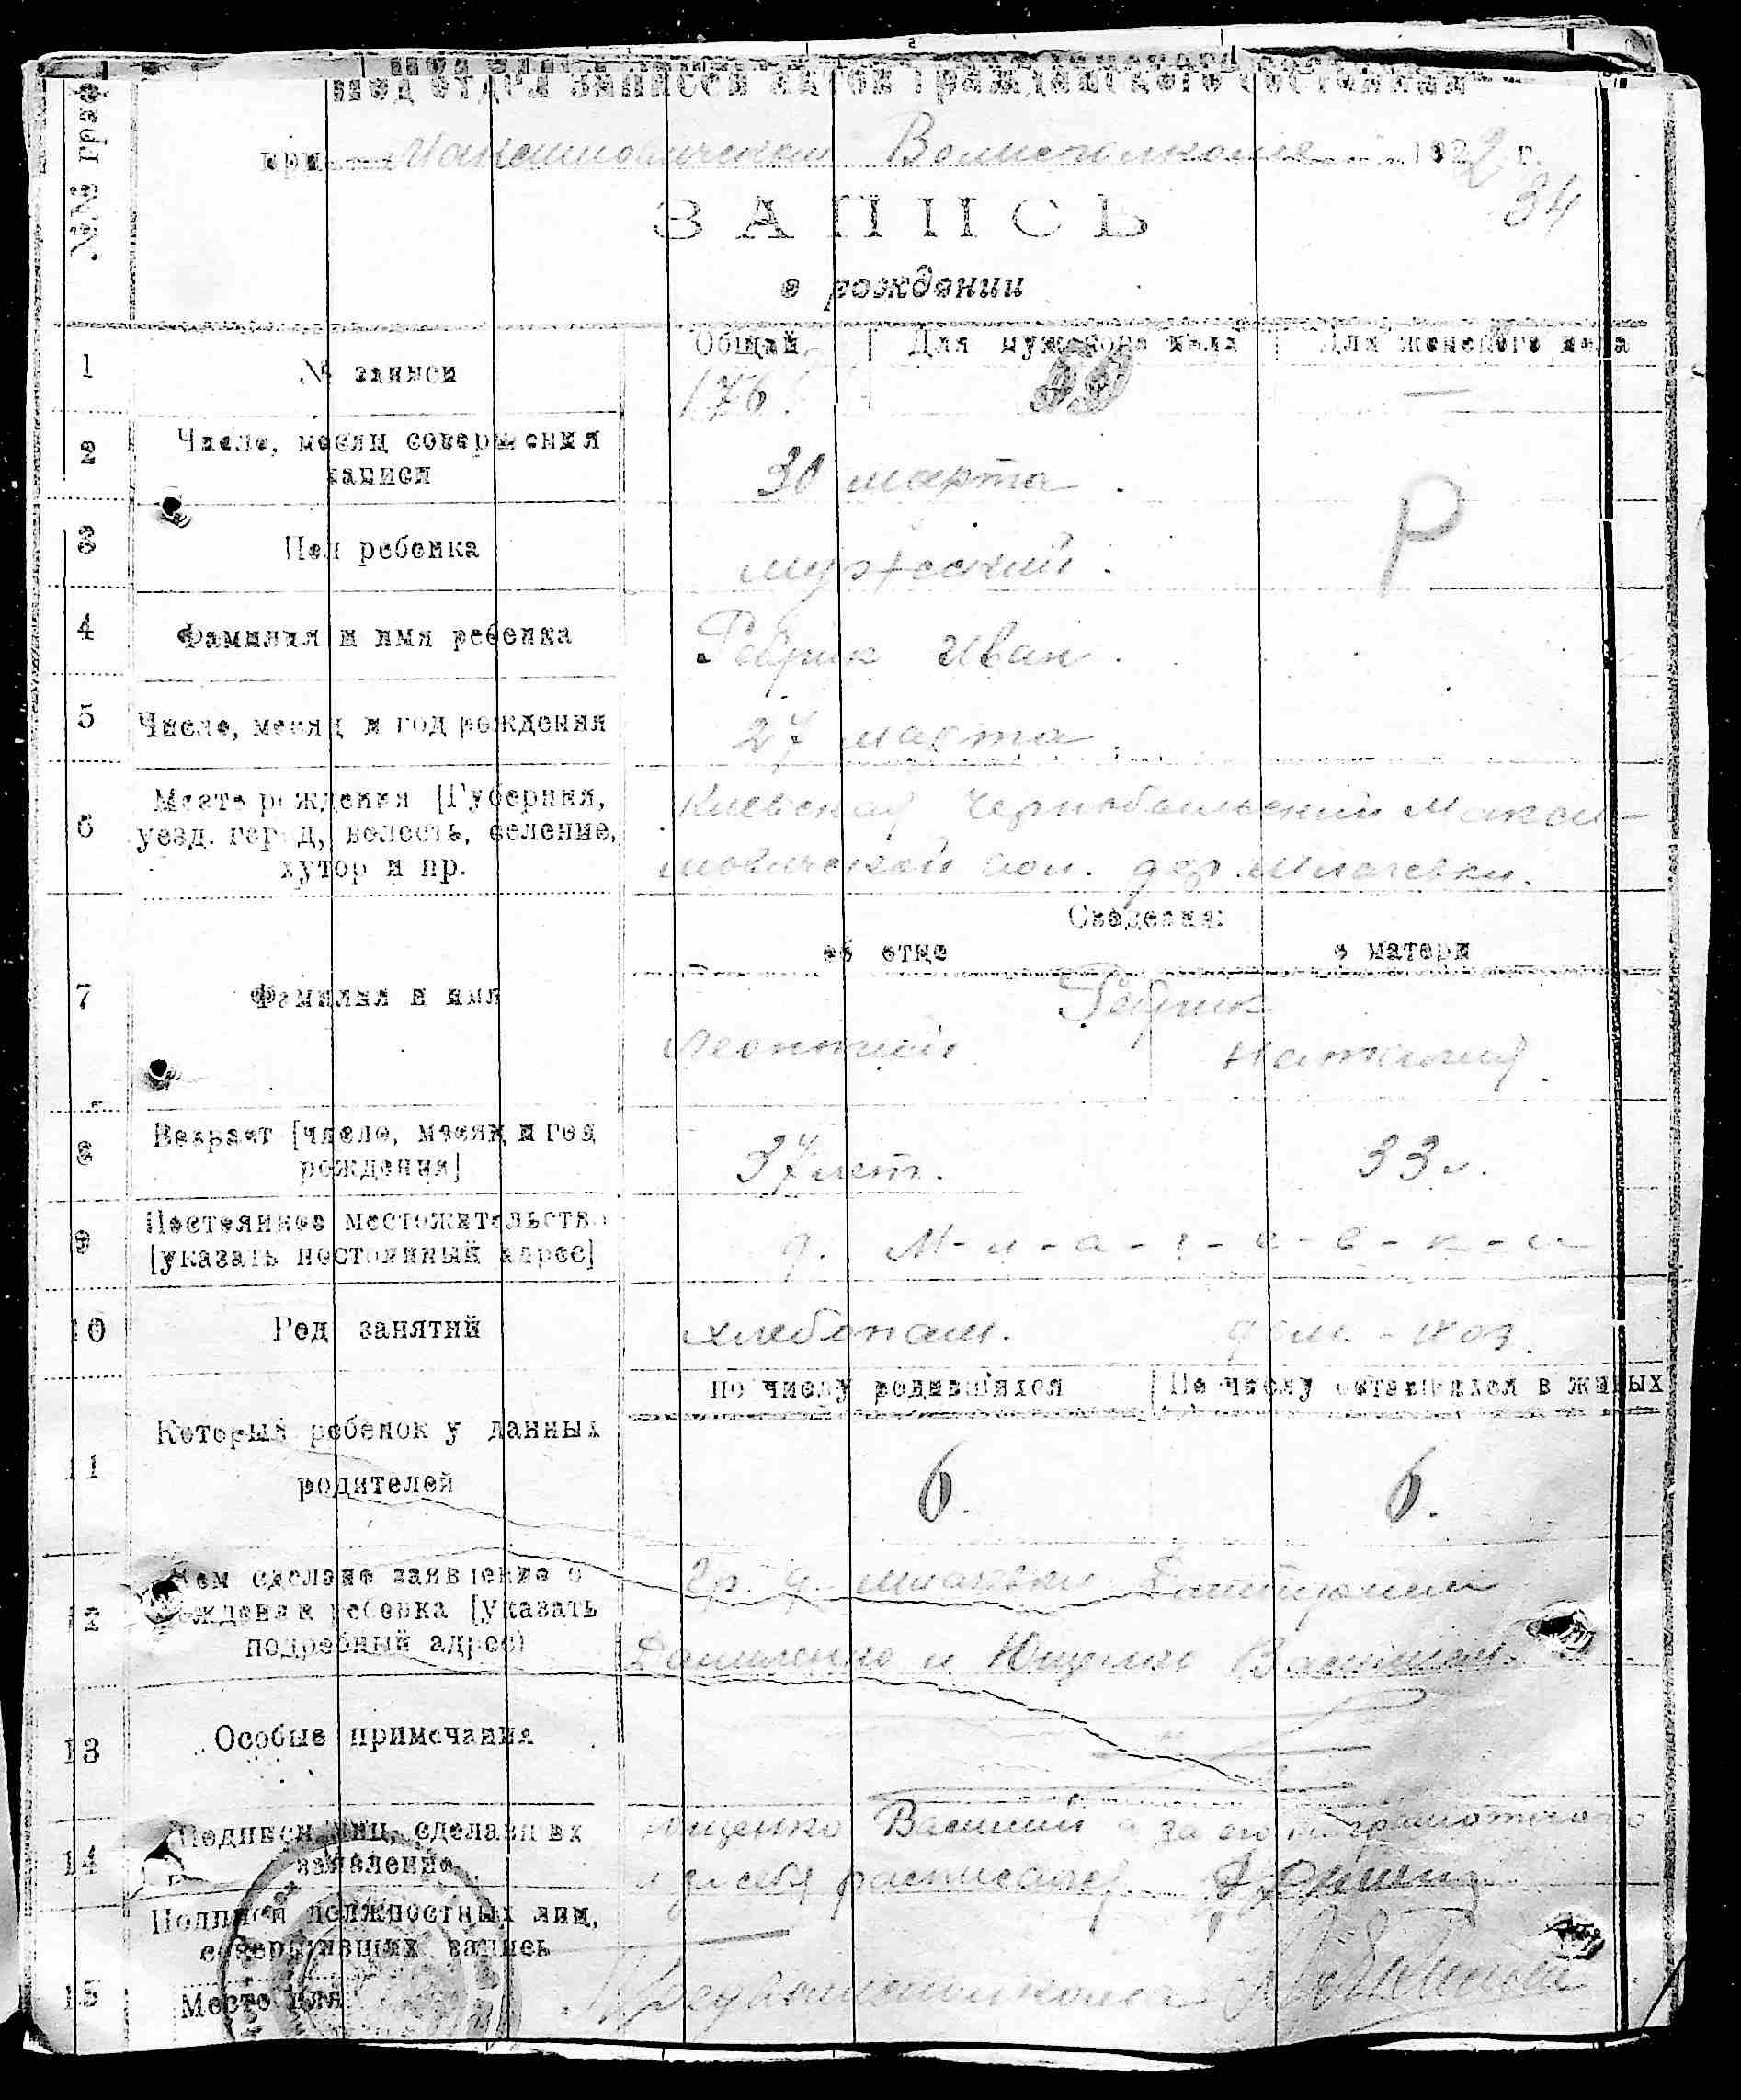 Под'отдел записей актов гражданского состояния
при Максимовическом Волисполкоме 1922 г.
34
ЗАПИСЬ
о рождении
№№ граф
Общий Для мужского пола Для женского пола
1 № записи 176. —
2 Число, месяц совершения
записи 30 марта.
3 Пол ребенка мужеский. Р
4 Фамилия и имя ребенка Ребрик Иван.
5 Число, месяц и год рождения 27 марта.
6 Место рождения [Губерния,
уезд, город, волость, селение,
хутор и пр.
Киевская Чернобыльский Макси-
мовической вол. дер. Млачевки.
Сведения:
об отце о матери
7 Фамилия и имя Ребрик
Леонтий Наталия.
8 Возраст [число, месяц и год
рождения] 37 лет. 33 л.
9 Постоянное местожительство
[указать постоянный адрес] д. М-л-а-ч-е-в-к-и
10 Род занятий хлебопаш. дом.-хоз.
По числу родившихся По числу оставшихся в живых
11 Который ребенок у данных
родителей 6. 6.
12 Кем сделано заявление о
рождении ребенка [указать
подробный адрес)
гр. д.
и Ющенко Василий
13 Особые примечания
14 Подписи лиц, сделавших
заявление
Ющенко Василий а за его неграмотного
и за себя расписался
Подписи должностных лиц,
совершивших запись
—
15 Место для
Предволисполкома